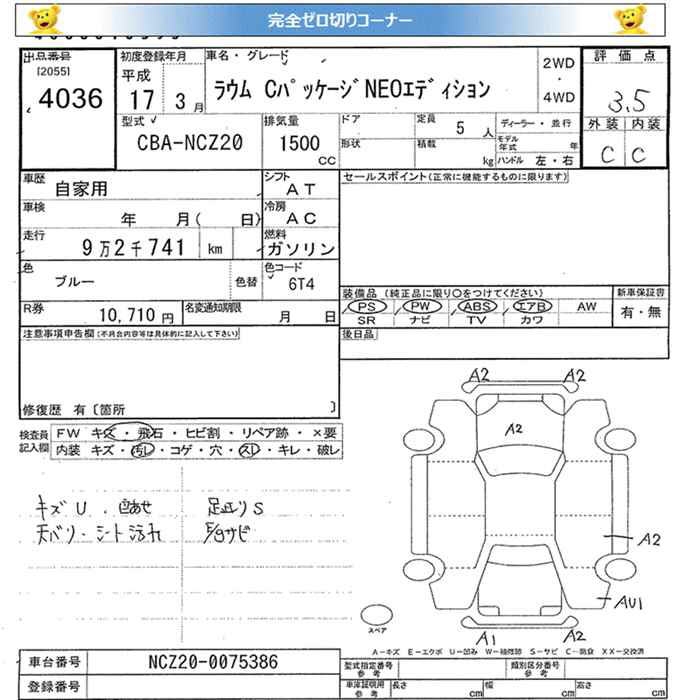 完全ゼロ切りコーナー
出品番号 初度登録年月 車名・グレード 2WD 評価点
[2055] 平成 ラウム CパッケージNEOエディション ・
4036 17 3月 4WD 3.5
型式 排気量 ドア 定員 5人 ディーラー・並行 外装 内装
CBA-NCZ20 1500 cc 形状 積載 kg モデル年式 年 C C
ハンドル 左・右
車歴 自家用 シフト AT セールスポイント(正常に機能するものに限ります)
車検 年 月( 日) 冷房 AC
走行 9万2千741 km 燃料 ガソリン
色 ブルー 色替 色コード 6T4
装備品 (純正品に限り○をつけてください) 新車保証書
R券 10,710円 名変通知期限 月 日 PS PW ABS エアB AW 有・無
SR ナビ TV カワ
注意事項申告欄(不具合内容等は具体的に記入して下さい) 後日品
修復歴 有〔箇所 〕
検査員記入欄 FW キズ・飛石・ヒビ割・リペア跡・×要
内装 キズ・汚レ・コゲ・穴・スレ・キレ・破レ
A2 A2
A2
キズU・色あせ 足廻りS
天バリ・シート汚れ E/gサビ
A2
AU1
スペア
A1 A2
A-キズ E-エクボ U-凹み W-補修跡 S-サビ C-腐食 XX-交換済
車台番号 NCZ20-0075386 型式指定番号 参考 類別区分番号 参考
登録番号 車庫証明用 参考 長さ cm 幅 cm 高さ cm